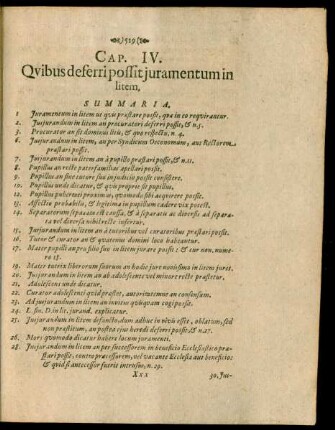 529
CAP. IV.
Qvibus deferri possit juramentum in
litem.
SUMMARIA.
1 Juramentum in litem ut quis præstare possit, qua in eo requirantur.
2. Jusjurandum in litem an procuratori deferri possit, & n. 5.
3. Procurator an sit dominus litis, & quo respectu, n. 4.
6. Jusjurandum in litem, an per Syndicum Oeconomum, aut Rectorem
præstari possit.
7. Jusjurandum in litem an à pupillo præstari possit, & n. 11.
8. Pupillus an recte paterfamilias apellari possit.
9. Pupillus an sine tutore suo in judicio possit consistere.
10. Pupillus unde dicatur, & quis proprie sit pupillus.
12. Pupillus pubertati proximus, quomodo sibi acquirere possit.
13. Affectus probabilis, & legitima in pupillum cadere vix possit.
14. Separatorum separata est causa, & à separatis ac diversis ad separa-
ta vel diversa nihil recte infertur.
15. Jusjurandum in litem an à tutoribus vel curatoribus præstari possit.
16. Tutor & curator an & quatenus domini loco habeantur.
17. Mater pupilli an pro filio suo in litem jurare possit: & cur non, nume-
ro 18.
19. Mater tutrix liberorum suorum an hodie jure novissimo in litem juret.
20. Jusjurandum in litem an ab adolescentes vel minore recte præstetur.
21. Adolescens unde dicatur.
22. Curator adolescenti quid præstet, autoritatemne an consensum.
23. Ad jurandum in litem an invitus quisquam cogi possit.
24. L. fin. D. in lit. jurand. explicatur.
25. Jusjurandum in litem defuncto, dum adhuc in vivis esset, oblatum, sed
non præstitum, an postea ejus heredi deferri possit, & n. 27.
26. Mors quomodo dicatur habere locum juramenti.
28. Jusjurandum in litem an per successorem in beneficio Ecclesiastico præ-
stari possit, contra prædecessorem, vel vacante Ecclesia aut beneficio:
& quid si antecessor fuerit intrusus, n. 29.
Xxx
30. Jus-